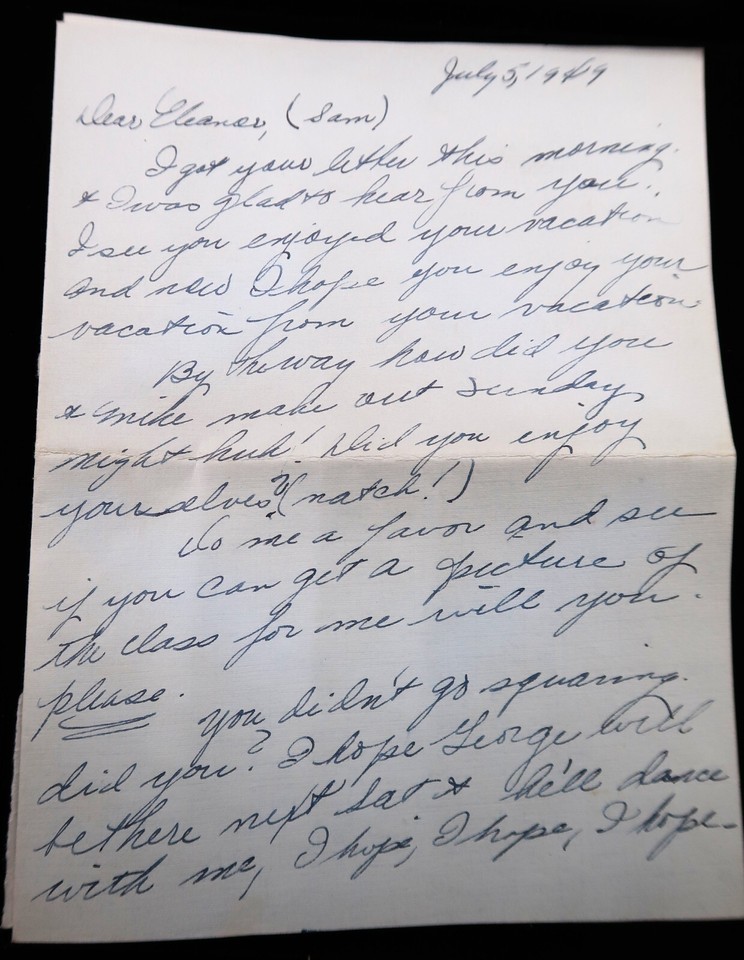 July 5, 1949
Dear Eleanor, (Sam)
I got your letter this morning.
& I was glad to hear from you.
I see you enjoyed your vacation
and now I hope you enjoy your
vacation from your vacation.
By the way how did you
& Mike make out Sunday
night huh! Did you enjoy
yourselves? (natch!)
Do me a favor and see
if you can get a picture of
the class for me will you.
please.
You didn't go squaring.
did you? I hope George will
be there next Sat & he'll dance
with me, I hope, I hope, I hope-